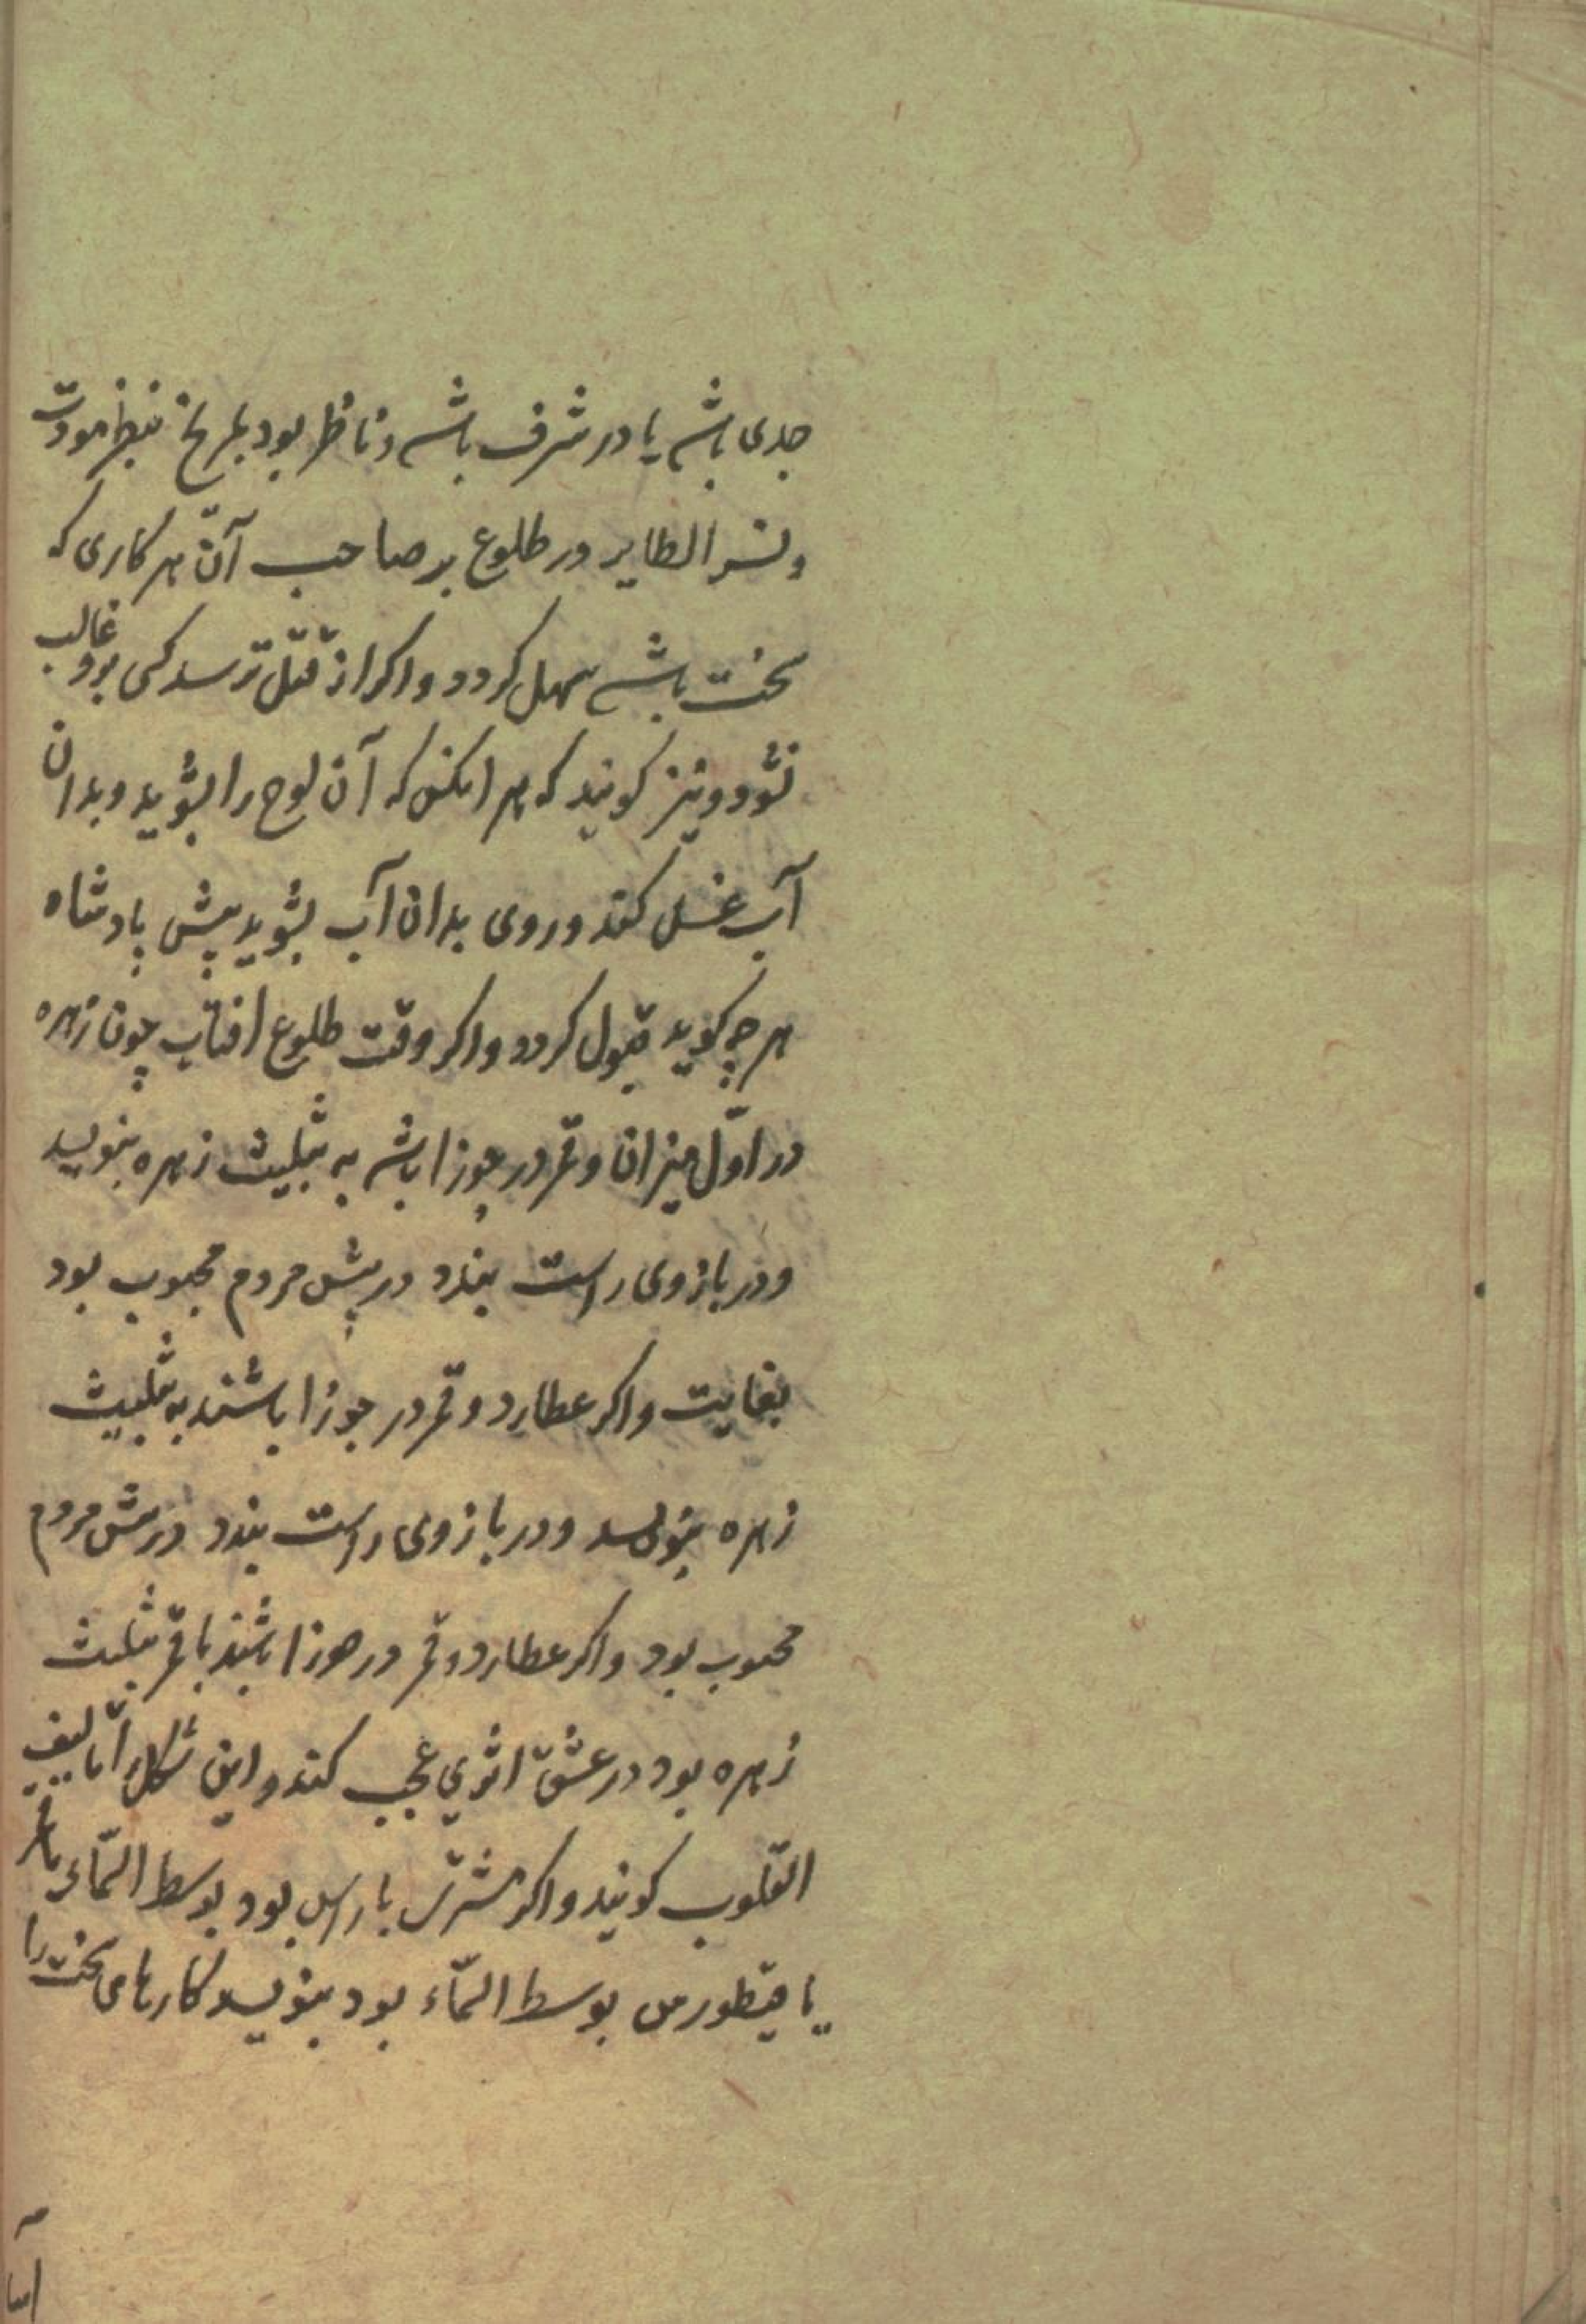 جدی باشد یا در شرف باشد و ناظر بود بمریخ بنظر مودت
و نسر الطایر در طلوع بر صاحب آن هر کاری که
سخت باشد سهل کردد و اکر از قتل ترسد کسی برو غالب
نشود و نیز کویند که هر انکس که آن لوح را بشوید و بدان
آب غسل کند و روی بدان آب بشوید پیش پادشاه
هر چه کوید قبول کردد و اکر وقت طلوع افتاب چون زهره
در اوّل میزان و قمر در جوزا باشد به تثلیث زهره بنویسد
و در بازوی راست بندد در پیش مردم محبوب بود
بغایت و اکر عطارد و قمر در جوزا باشند به تثلیث
زهره بنویسد و در بازوی راست بندد در پیش مردم
محبوب بود و اکر عطارد و قمر در جوزا باشند با قمر تثلیث
زهره بود در عشق اثری عجب کند و این شکل را تالیف
القلوب کویند و اکر مشتری با راس بود بوسط السّماء یا قمر
یا قیطورس بوسط السّماء بود بنویسد کارهای سخت را